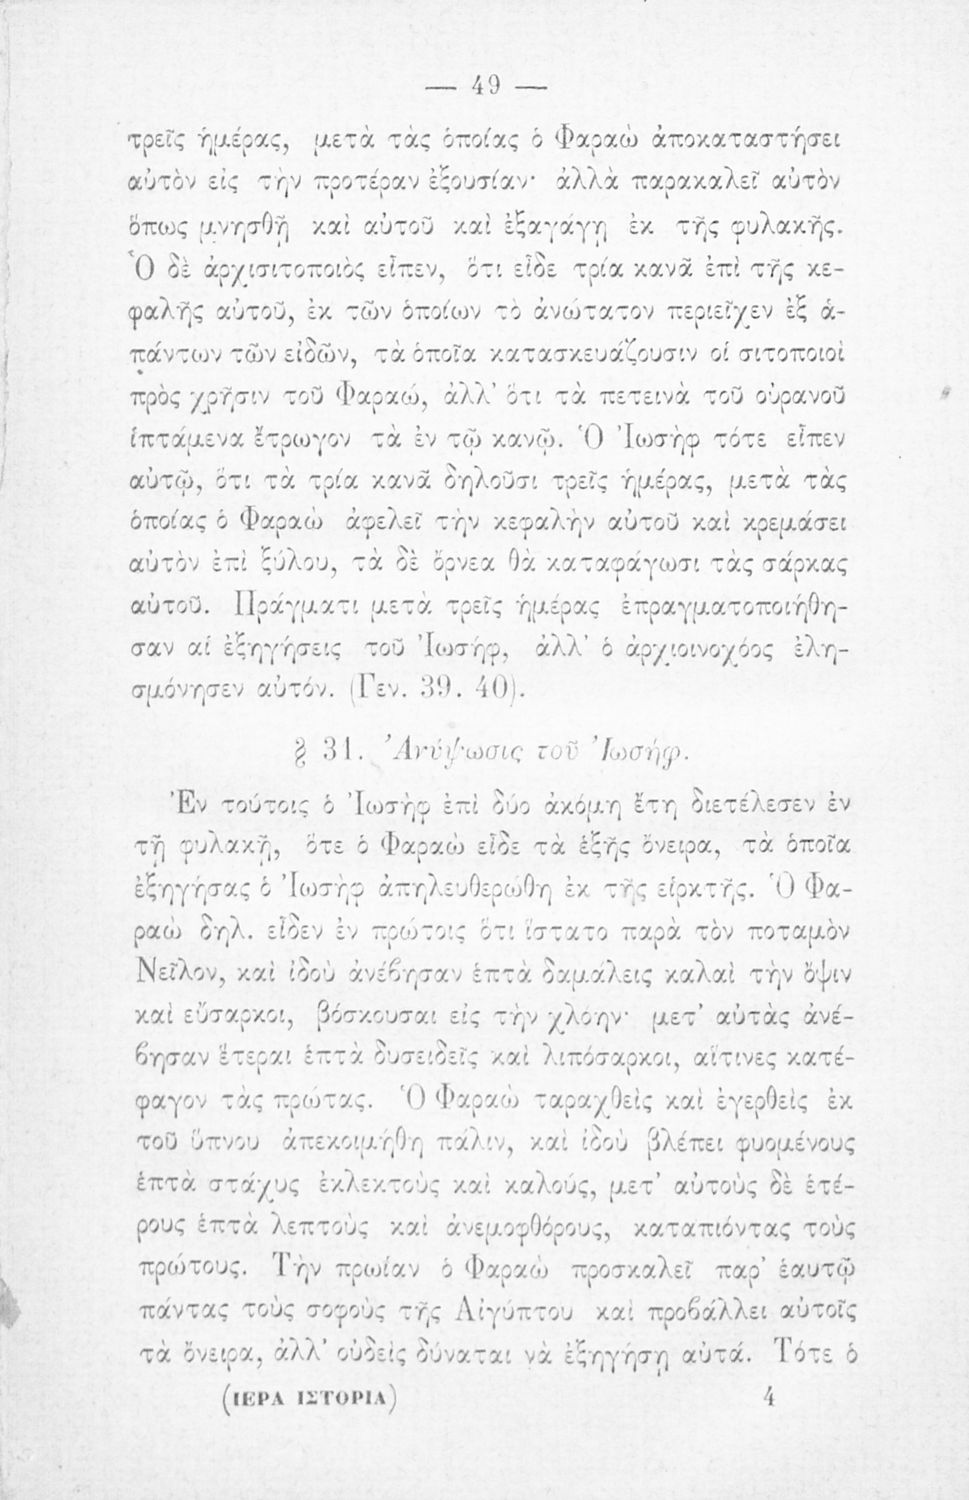 — 49 —
τρεῖς ἡμέρας, μετὰ τὰς ὁποίας ὁ Φαραὼ ἀποκαταστήσει
αὐτὸν εἰς τὴν προτέραν ἐξουσίαν· ἀλλὰ παρακαλεῖ αὐτὸν
ὅπως μνησθῇ καὶ αὐτοῦ καὶ ἐξαγάγῃ ἐκ τῆς φυλακῆς.
Ὁ δὲ ἀρχισιτοποιὸς εἶπεν, ὅτι εἶδε τρία κανᾶ ἐπὶ τῆς κε-
φαλῆς αὐτοῦ, ἐκ τῶν ὁποίων τὸ ἀνώτατον περιεῖχεν ἐξ ἁ-
πάντων τῶν εἰδῶν, τὰ ὁποῖα κατασκευάζουσιν οἱ σιτοποιοὶ
πρὸς χρῆσιν τοῦ Φαραώ, ἀλλ' ὅτι τὰ πετεινὰ τοῦ οὐρανοῦ
ἱπτάμενα ἔτρωγον τὰ ἐν τῷ κανῷ. Ὁ Ἰωσὴφ τότε εἶπεν
αὐτῷ, ὅτι τὰ τρία κανᾶ δηλοῦσι τρεῖς ἡμέρας, μετὰ τὰς
ὁποίας ὁ Φαραὼ ἀφελεῖ τὴν κεφαλὴν αὐτοῦ καὶ κρεμάσει
αὐτὸν ἐπὶ ξύλου, τὰ δὲ ὄρνεα θὰ καταφάγωσι τὰς σάρκας
αὐτοῦ. Πράγματι μετὰ τρεῖς ἡμέρας ἐπραγματοποιήθη-
σαν αἱ ἐξηγήσεις τοῦ Ἰωσήφ, ἀλλ' ὁ ἀρχιοινοχόος ἐλη-
σμόνησεν αὐτόν. (Γεν. 39. 40).
§ 31. Ἀνύψωσις τοῦ Ἰωσήφ.
Ἐν τούτοις ὁ Ἰωσὴφ ἐπὶ δύο ἀκόμη ἔτη διετέλεσεν ἐν
τῇ φυλακῇ, ὅτε ὁ Φαραὼ εἶδε τὰ ἑξῆς ὄνειρα, τὰ ὁποῖα
ἐξηγήσας ὁ Ἰωσὴφ ἀπηλευθερώθη ἐκ τῆς εἱρκτῆς. Ὁ Φα-
ραὼ δηλ. εἶδεν ἐν πρώτοις ὅτι ἵστατο παρὰ τὸν ποταμὸν
Νεῖλον, καὶ ἰδοὺ ἀνέβησαν ἑπτὰ δαμάλεις καλαὶ τὴν ὄψιν
καὶ εὔσαρκοι, βόσκουσαι εἰς τὴν χλόην· μετ' αὐτὰς ἀνέ-
βησαν ἕτεραι ἑπτὰ δυσειδεῖς καὶ λιπόσαρκοι, αἵτινες κατέ-
φαγον τὰς πρώτας. Ὁ Φαραὼ ταραχθεὶς καὶ ἐγερθεὶς ἐκ
τοῦ ὕπνου ἀπεκοιμήθη πάλιν, καὶ ἰδοὺ βλέπει φυομένους
ἑπτὰ στάχυς ἐκλεκτοὺς καὶ καλούς, μετ' αὐτοὺς δὲ ἑτέ-
ρους ἑπτὰ λεπτοὺς καὶ ἀνεμοφθόρους, καταπιόντας τοὺς
πρώτους. Τὴν πρωίαν ὁ Φαραὼ προσκαλεῖ παρ' ἑαυτῷ
πάντας τοὺς σοφοὺς τῆς Αἰγύπτου καὶ προβάλλει αὐτοῖς
τὰ ὄνειρα, ἀλλ' οὐδεὶς δύναται νὰ ἐξηγήσῃ αὐτά. Τότε ὁ
(ΙΕΡΑ ΙΣΤΟΡΙΑ) 4